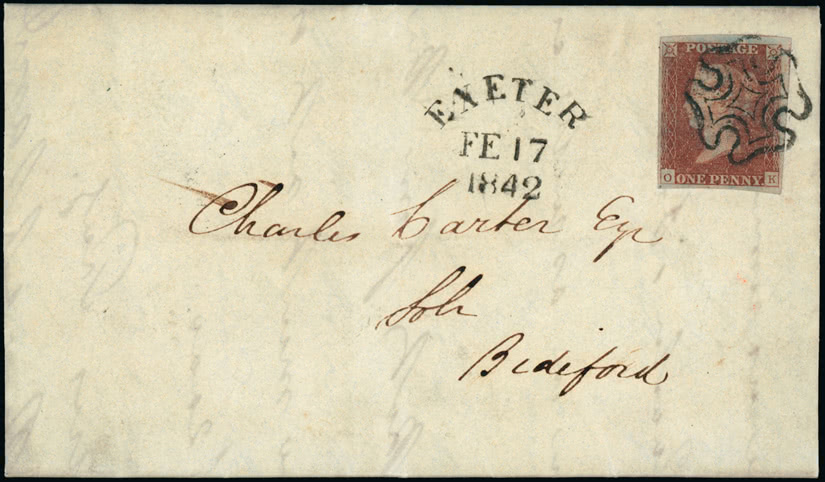 POSTAGE
ONE PENNY
O K
EXETER
FE 17
1842
Charles Carter Esqr
Solr
Bideford